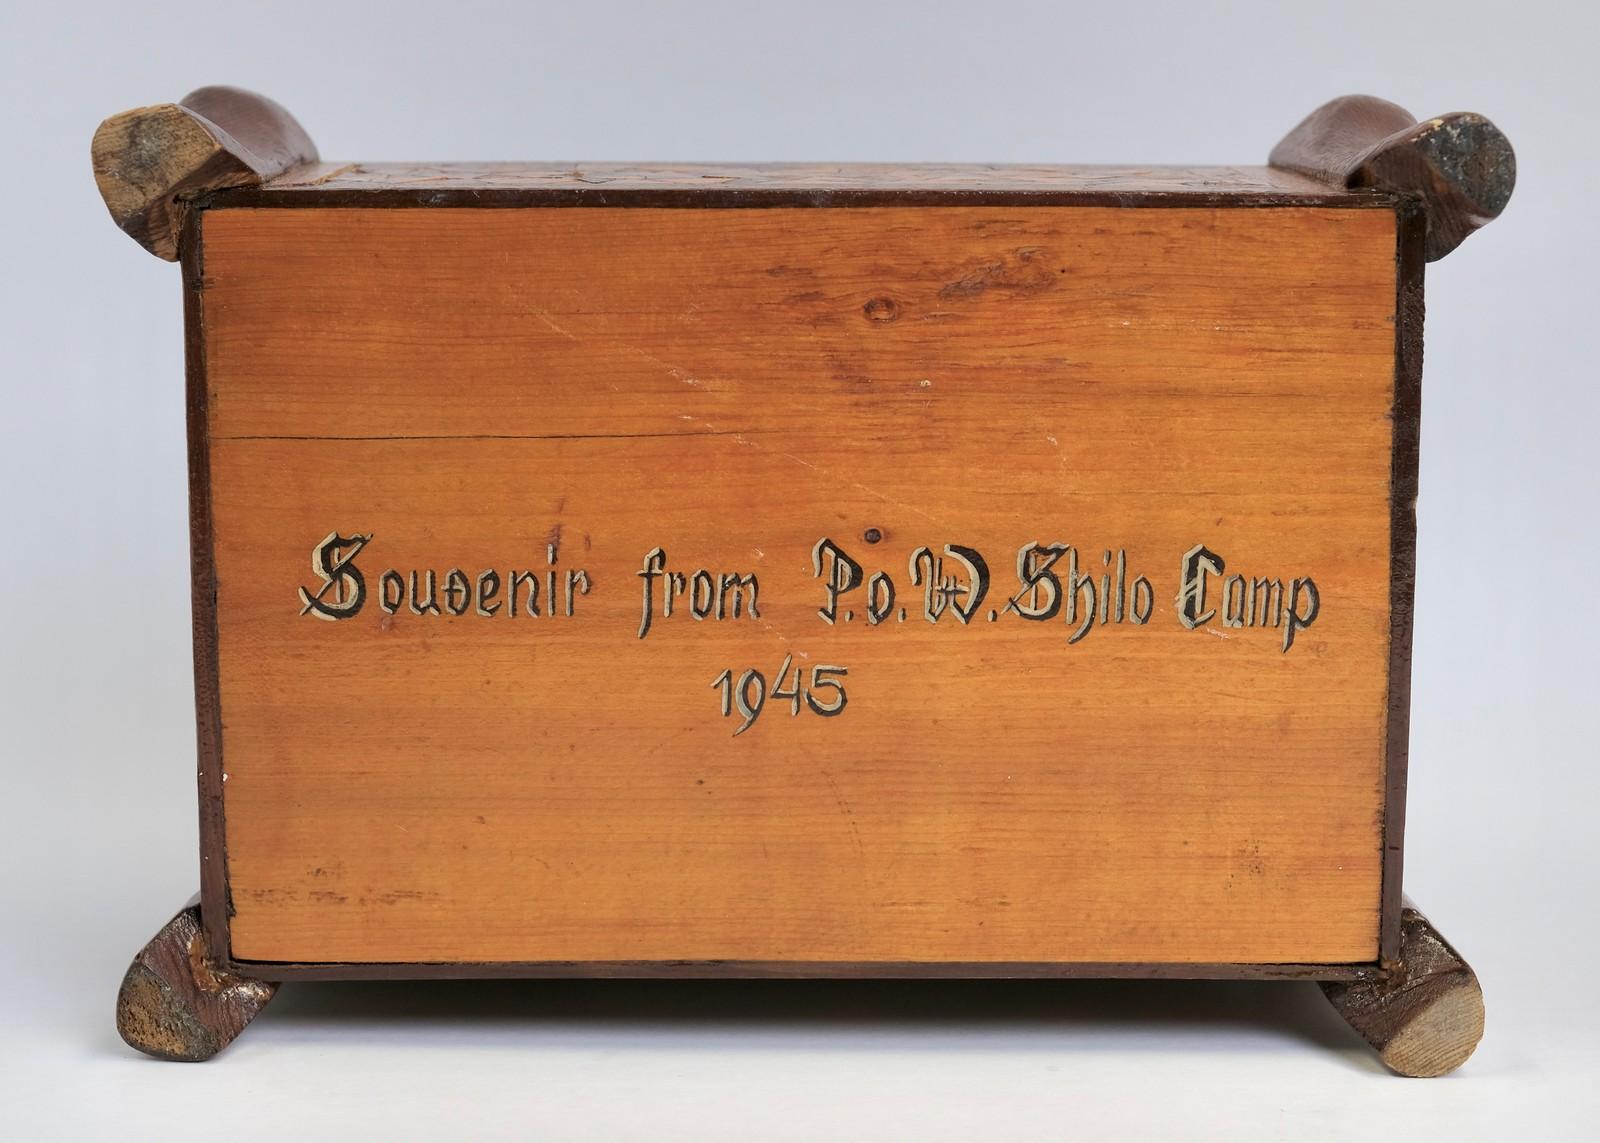 Souvenir from P.o.W. Shilo Camp
1945